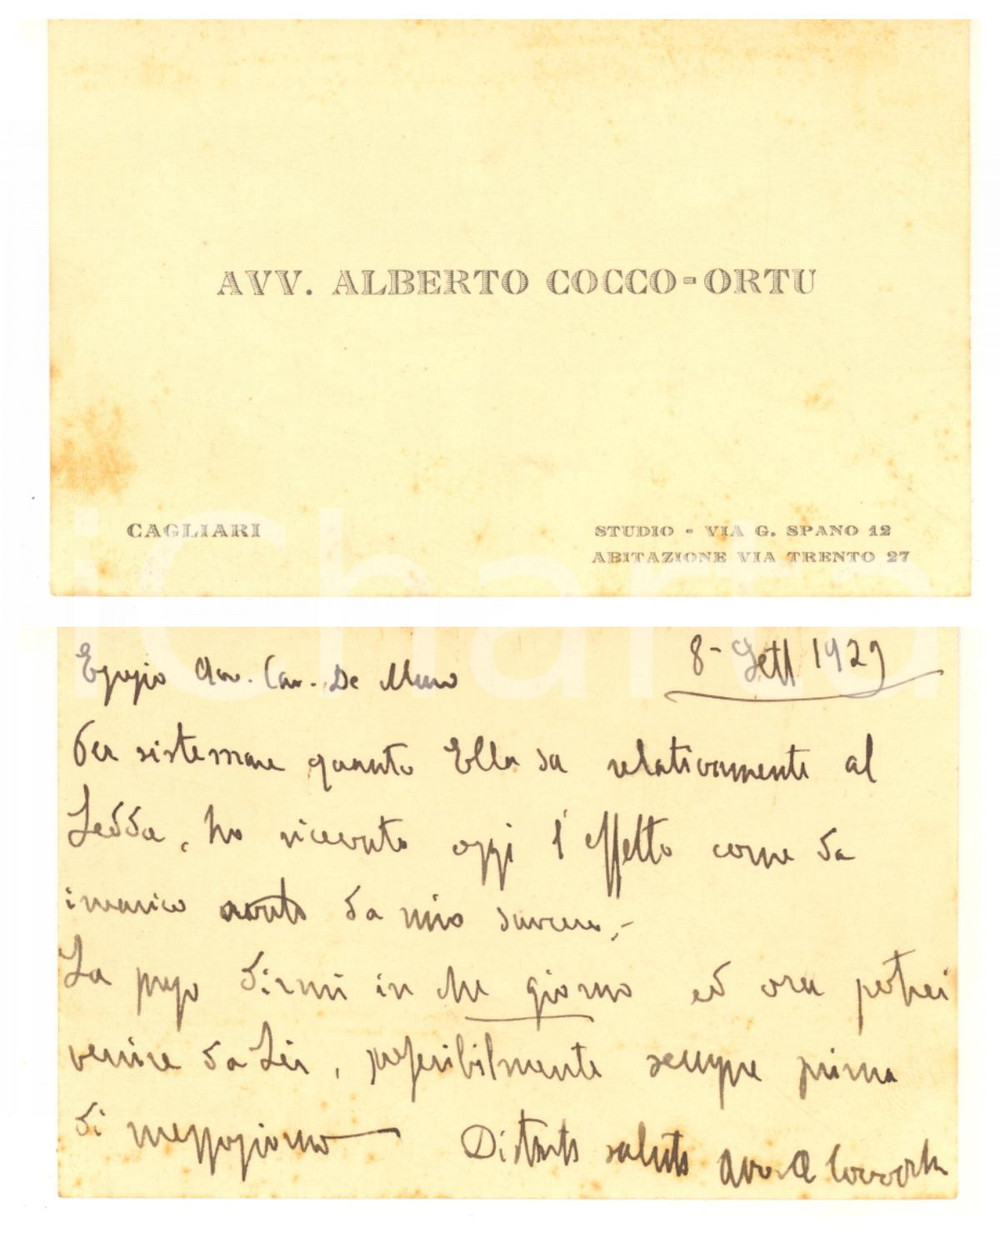 AVV. ALBERTO COCCO-ORTU
CAGLIARI
STUDIO - VIA G. SPANO 12
ABITAZIONE VIA TRENTO 27
iCharta
8 - Sett 1929
Egregio Avv. Cav. De Muro
Per sistemare quanto Ella sa relativamente al
Ledda, ho ricevuto oggi l'effetto come da
incarico avuto da mio suocero,-
La prego dirmi in che giorno ed ora potrei
venire da Lei, preferibilmente sempre prima
di mezzogiorno Distinti saluti